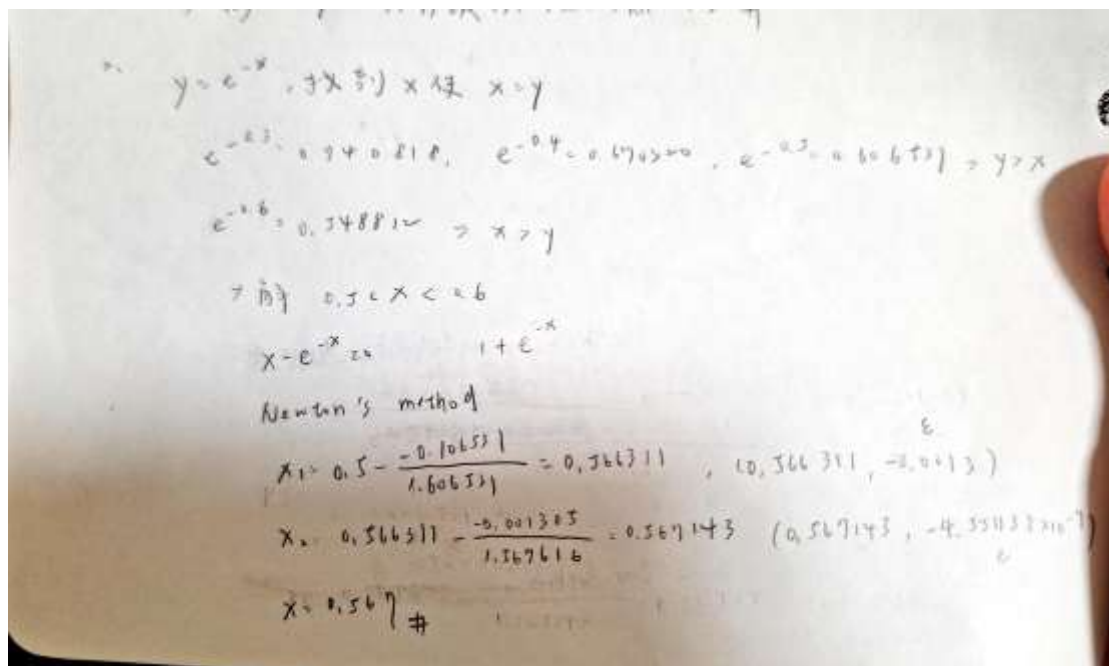 y = e^{-x} , 找到 x 使 x = y
e^{-0.3} = 0.740818, e^{-0.4} = 0.670320, e^{-0.5} = 0.606531 ⇒ y > x
e^{-0.6} = 0.548812 ⇒ x > y
0.5 < x < 0.6
x - e^{-x} = 0 1 + e^{-x}
Newton's method
ε
x_1 = 0.5 - \frac{-0.106531}{1.606531} = 0.566311 , (0.566311, -0.0013)
x_2 = 0.566311 - \frac{-0.001305}{1.567616} = 0.567143 (0.567143,
x = 0.567 #